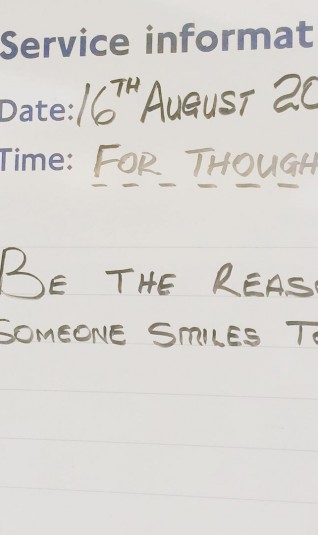 Service informat
Date: 16TH AUGUST 20
Time: FOR THOUGH
BE THE REAS
SOMEONE SMILES TO